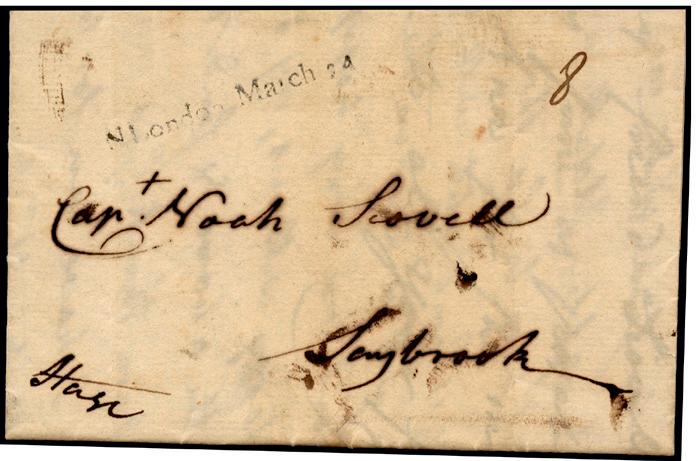 N London March 24
8
Cap.t Noah Scovell
Saybrook
Stage